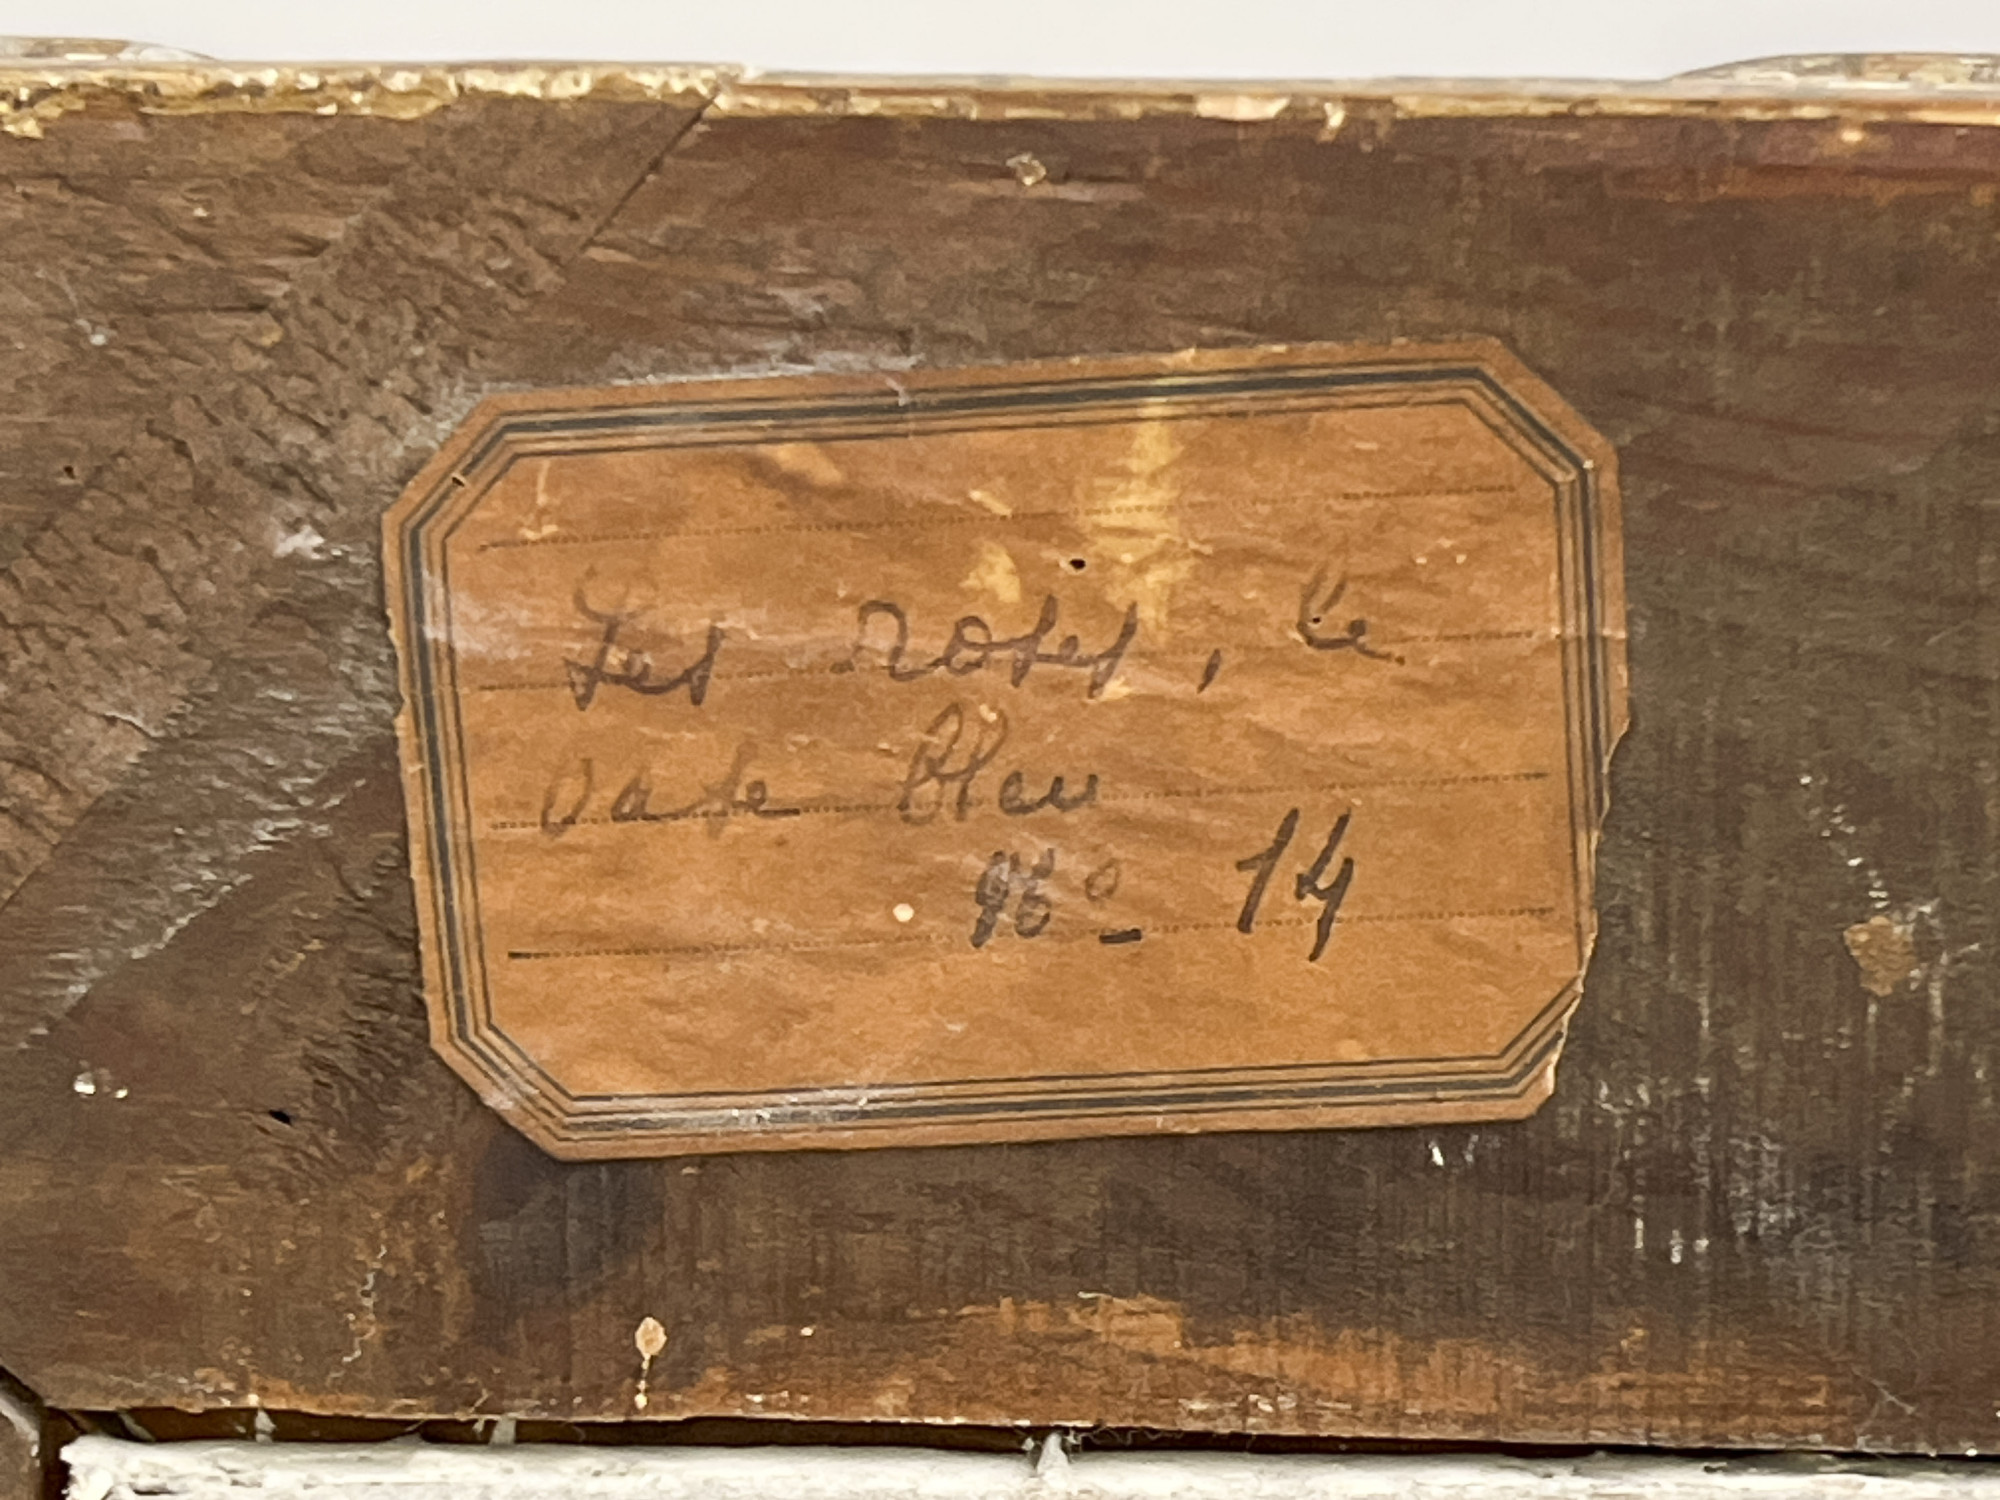 Les roses, le
vase bleu
No 14